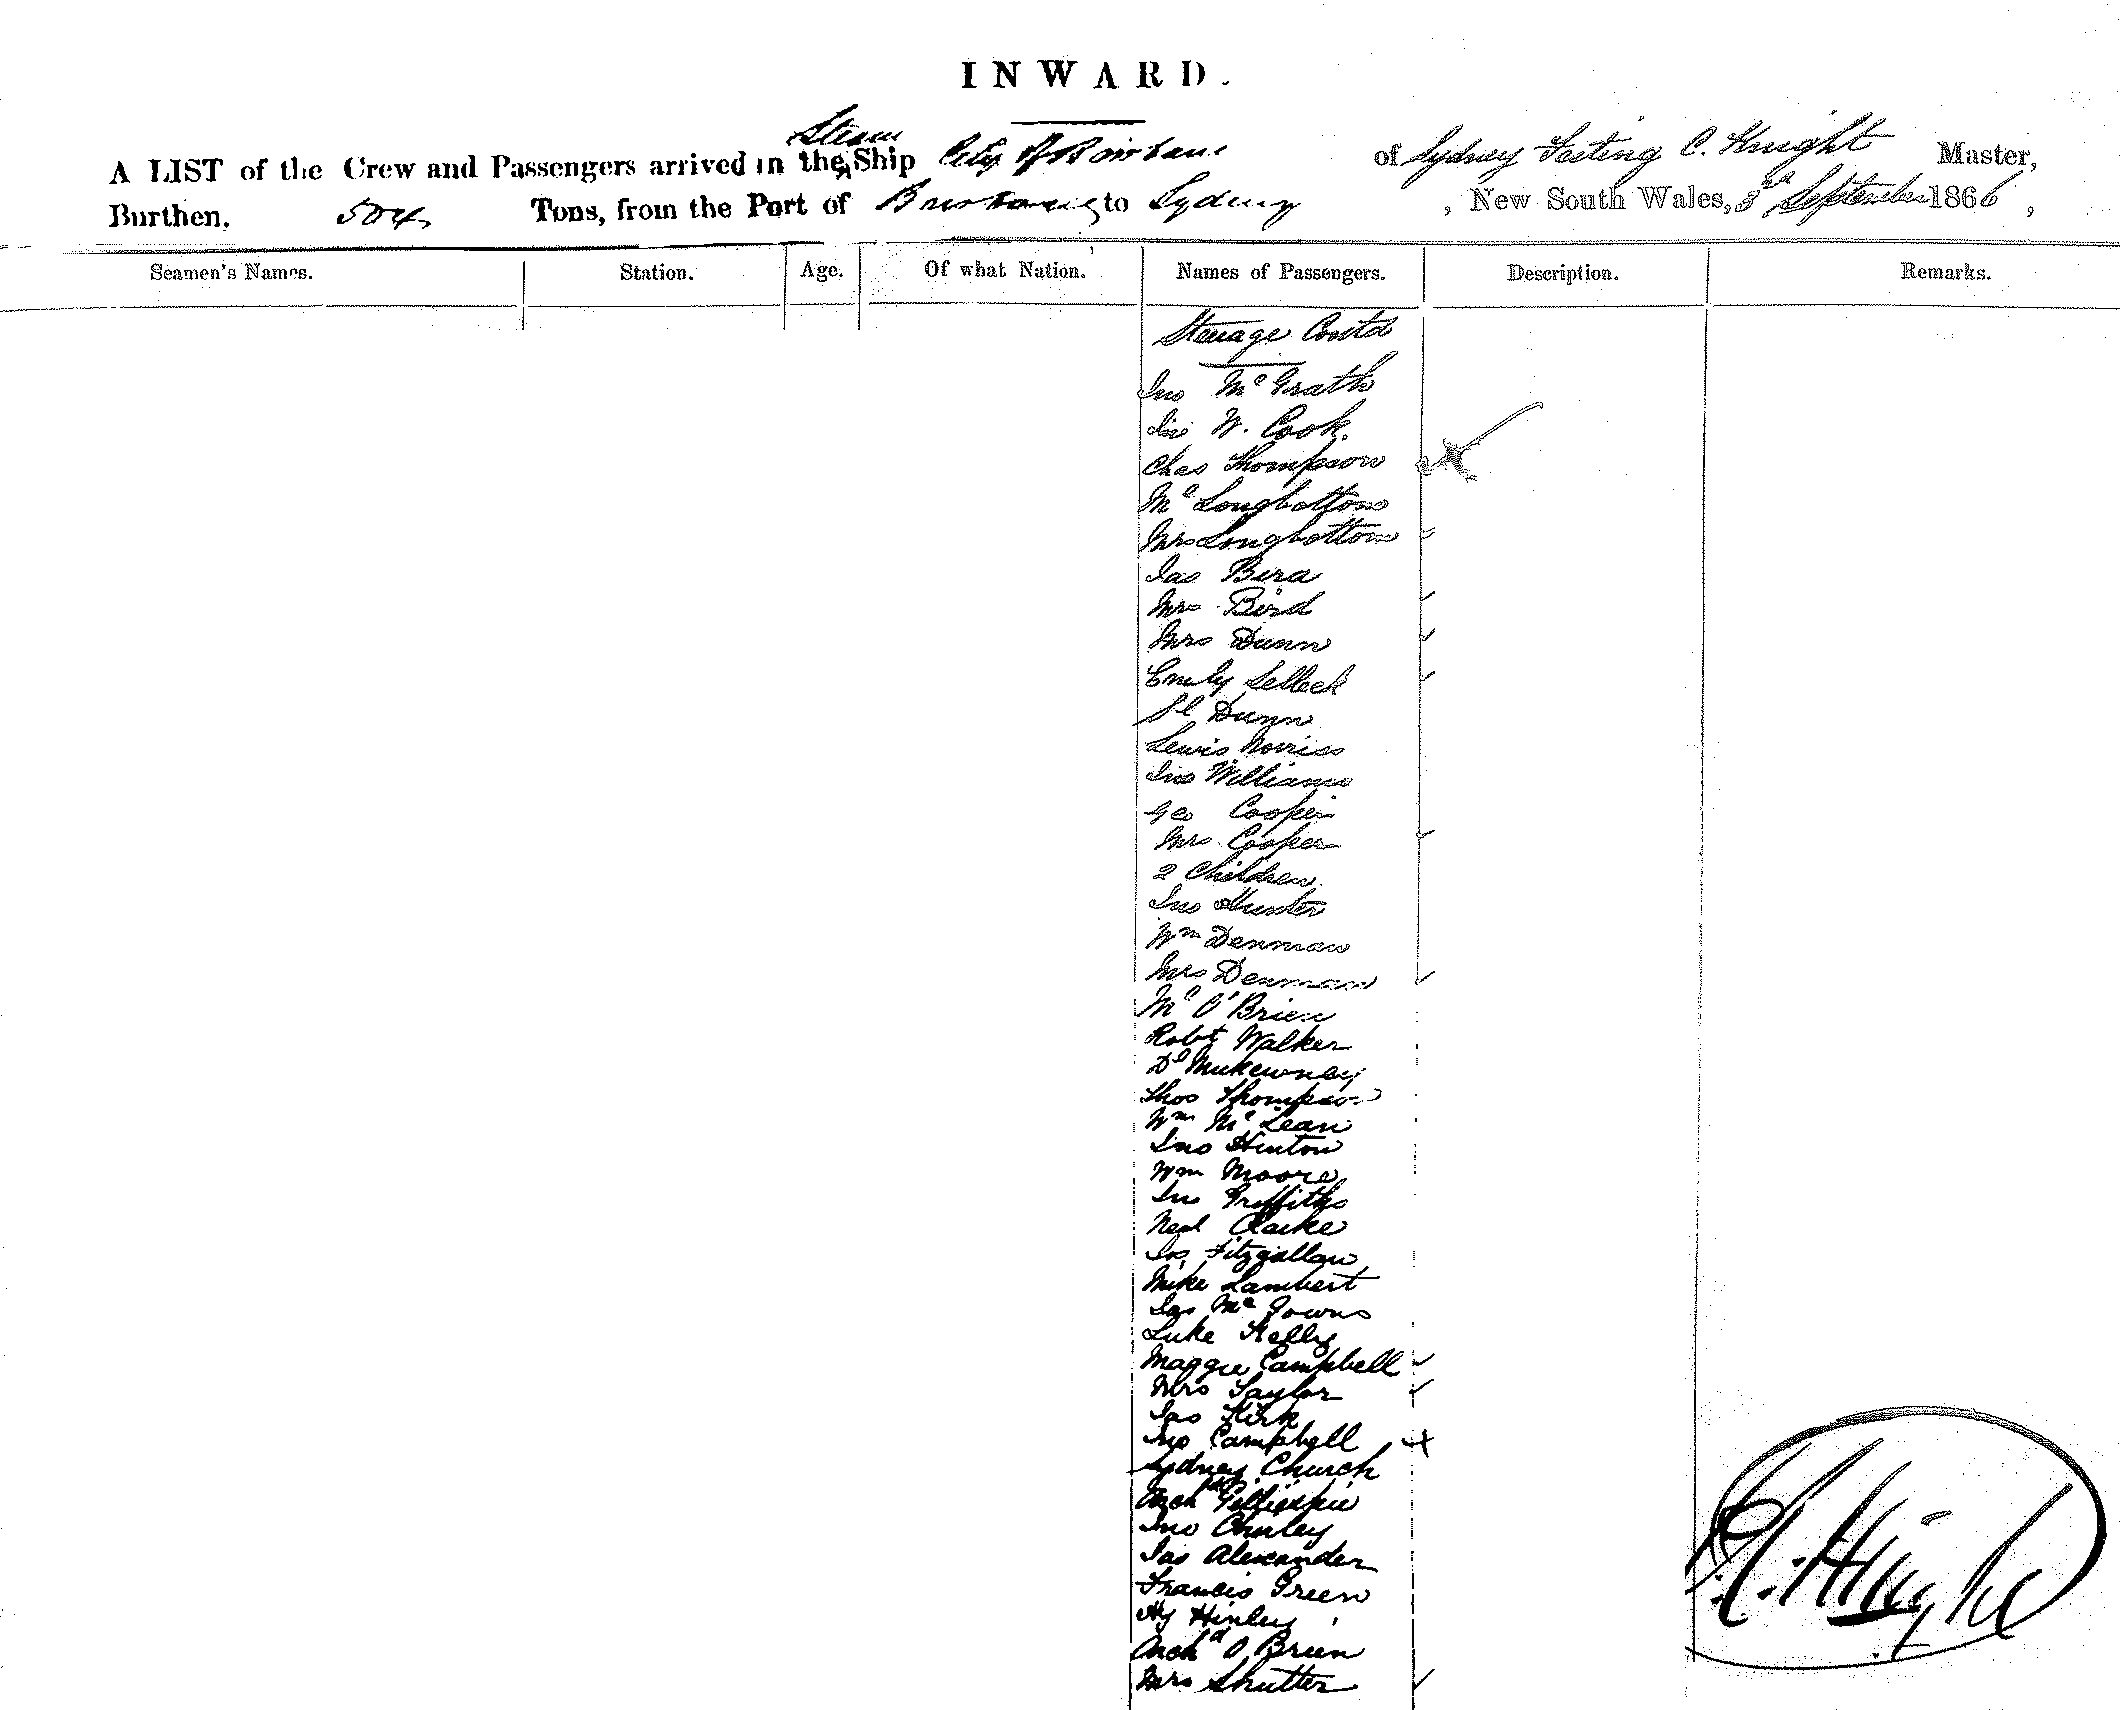 INWARD.
Steam
A LIST of the Crew and Passengers arrived in the Ship City of Brisbane of Sydney Festing C. Knight Master,
Burthen, 504 Tons, from the Port of Brisbane to Sydney, New South Wales, 3rd September 1866,
Seamen's Names. Station. Age. Of what Nation. Names of Passengers. Description. Remarks.
Steerage Contd
Jno McGrath
Jno W. Cook.
Chas Thompson
Mc Longbottom
Mrs Longbottom
Jas Bird
Mrs Bird
Mrs Dunn
Emily Selleck
Dunn
Lewis Norriss
Jno Williams
Geo Cooper
Mrs Cooper
2 Children
Jno Hunter
Wm Denman
Mrs Denman
Mc O'Brien
Robt Walker
Dl
Thos Thompson
Wm McLean
Jno Hinton
Wm Moore
Jno Griffiths
Neal Clarke
Jos Fitzgallan
Mike Lambert
Jas Mc Gowns
Luke Kelly
Maggie Campbell
Mrs Taylor
Jas Kirk
Jno Campbell
Sydney Church
Archd Gillespie
Jno
Jas Alexander
Francis Green
Hy Hinley
Archd O'Brien
Mrs Shutter
F. C. Knight